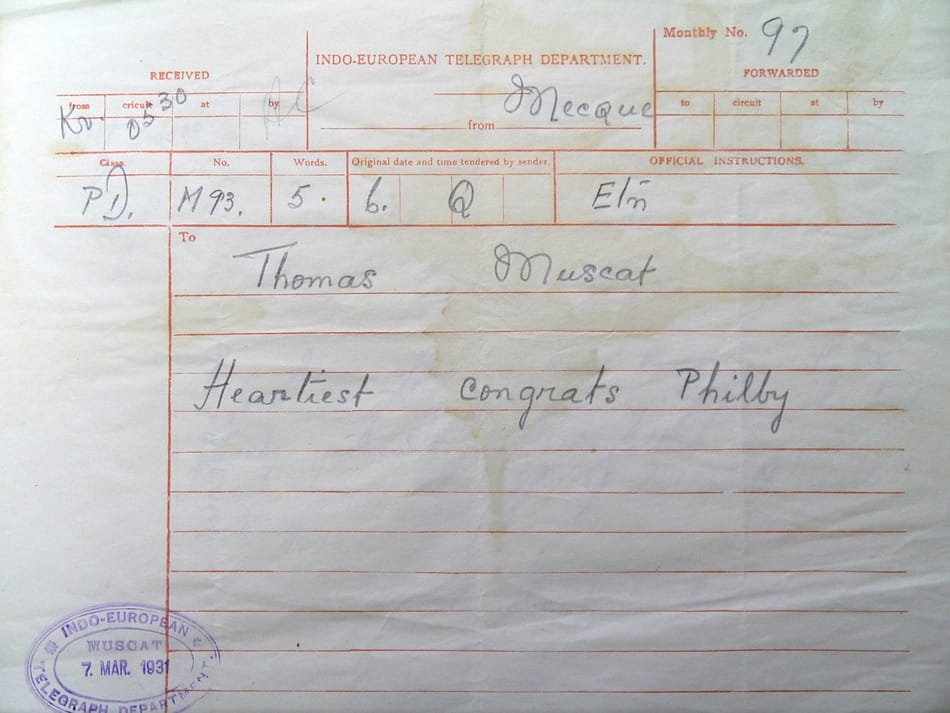 Monthly No. 97
INDO-EUROPEAN TELEGRAPH DEPARTMENT.
RECEIVED
FORWARDED
from cricuit at by
to circuit at by
Kr. 0530
Mecque
from
Class. No. Words. Original date and time tendered by sender. OFFICIAL INSTRUCTIONS.
PD. M 93. 5. 6. Q
To
Thomas Muscat
Heartiest congrats Philby
INDO-EUROPEAN
MUSCAT
7. MAR. 1931
TELEGRAPH DEPARTMENT.